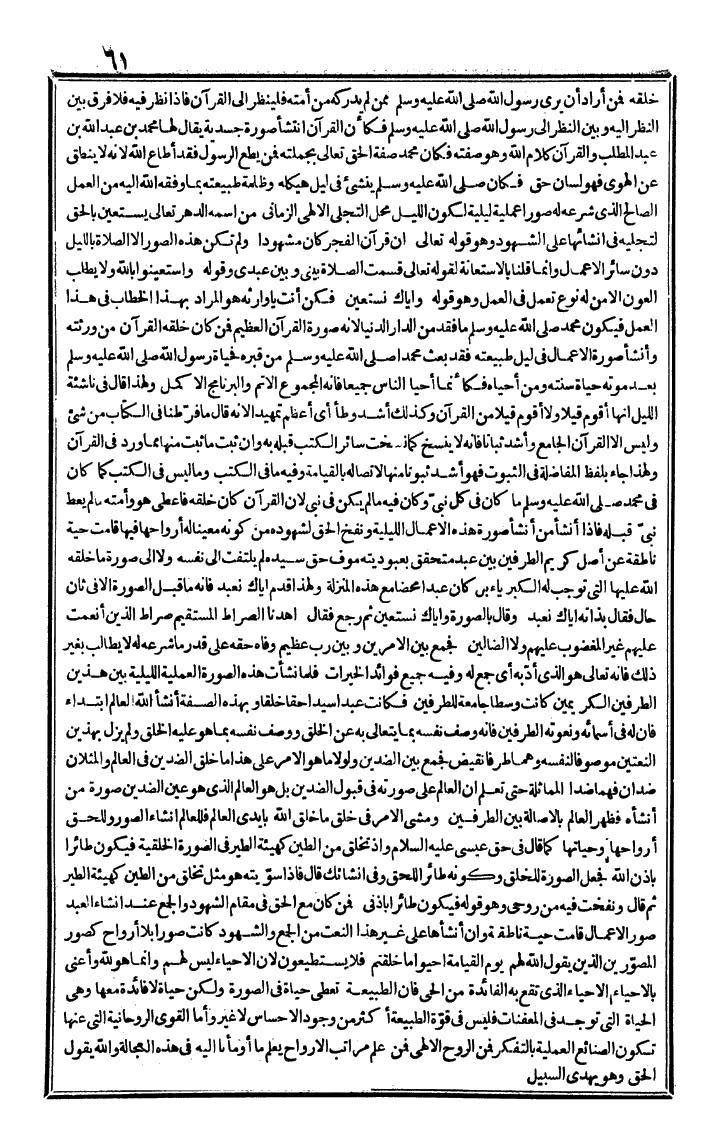 ٦١
خلقه فمن أراد أن يرى رسول الله صلى الله عليه وسلم ممن لم يدركه من أمته فلينظر الى القرآن فاذا نظر فيه فلا فرق بين
النظر اليه وبين النظر الى رسول الله صلى الله عليه وسلم فكأن القرآن انتشأ صورة جسدية يقال لها محمد بن عبد الله بن
عبد المطلب والقرآن كلام الله وهو صفته فكان محمد صفة الحق تعالى بجملته فمن يطع الرسول فقد أطاع الله لانه لا ينطق
عن الهوى فهو لسان حق فكان صلى الله عليه وسلم ينشئ فى ليل هيكله وظلمة طبيعته بما وفقه الله اليه من العمل
الصالح الذى شرعه له صورا عملية ليلية لكون الليل محل التجلى الالهى الزمانى من اسمه الدهر تعالى يستعين بالحق
لتجليه فى انشائها على الشهود وهو قوله تعالى ان قرآن الفجر كان مشهودا ولم تكن هذه الصور الا الصلاة بالليل
دون سائر الاعمال وانما قلنا بالاستعانة لقوله تعالى قسمت الصلاة بينى وبين عبدى وقوله واستعينوا بالله ولا يطلب
العون الا من له نوع تعمل فى العمل وهو قوله واياك نستعين فكن أنت ياوارثه هو المراد بهذا الخطاب فى هذا
العمل فيكون محمد صلى الله عليه وسلم ما فقد من الدار الدنيا لانه صورة القرآن العظيم فمن كان خلقه القرآن من ورثته
وأنشأ صورة الاعمال فى ليل طبيعته فقد بعث محمدا صلى الله عليه وسلم من قبره فحياة رسول الله صلى الله عليه وسلم
بعد موته حياة سنته ومن أحياه فكأنما أحيا الناس جميعا فانه المجموع الاتم والبرنامج الاكمل ولهذا قال فى ناشئة
الليل انها أقوم قيلا ولا أقوم قيلا من القرآن وكذلك أشد وطأ أى أعظم تمهيدا لانه قال ما فرطنا فى الكتاب من شئ
وليس الا القرآن الجامع وأشد ثباتا فانه لا ينسخ كما نسخت سائر الكتب قبله به وان ثبت ما ثبت منها مما ورد فى القرآن
ولهذا جاء بلفظ المفاضلة فى الثبوت فهو أشد ثبوتا منها لاتصاله بالقيامة وفيه ما فى الكتب وما ليس فى الكتب كما كان
فى محمد صلى الله عليه وسلم ما كان فى كل نبىّ وكان فيه ما لم يكن فى نبى لان القرآن كان خلقه فاعطى هو وأمته ما لم يعط
نبىّ قبله فاذا أنشأ من أنشأ صورة هذه الاعمال الليلية ونفخ الحق لشهوده من كونه معيناله أرواحها فيها قامت حية
ناطقة عن أصل كريم الطرفين بين عبد متحقق بعبوديته موف حق سيده لم يلتفت الى نفسه ولا الى صورة ما خلقه
الله عليها التى توجب له الكبرياء بل كان عبدا محضا مع هذه المنزلة ولهذا قدم اياك نعبد فانه ما قبل الصورة الا فى ثان
حال فقال بذاته اياك نعبد وقال بالصورة واياك نستعين ثم رجع فقال اهدنا الصراط المستقيم صراط الذين أنعمت
عليهم غير المغضوب عليهم ولا الضالين فجمع بين الامرين وبين رب عظيم وفاه حقه على قدر ما شرعه له لا يطالب بغير
ذلك فانه تعالى هو الذى أدّبه أى جمع له وفيه جميع فوائد الخيرات فلما نشأت هذه الصورة العملية الليلية بين هذين
الطرفين الكريمين كانت وسطا جامعة للطرفين فكانت عبدا سيدا حقا خلقا وبهذه الصفة أنشأ الله العالم ابتداء
فان له فى أسمائه ونعوته الطرفين فانه وصف نفسه بما يتعالى به عن الخلق ووصف نفسه بما هو عليه الخلق ولم يزل بهذين
النعتين موصوفا لنفسه وهما طرفا نقيض فجمع بين الضدين ولولا ما هو الامر على هذا ما خلق الضدين فى العالم والمثلان
ضدان فهما ضدا المماثلة حتى تعلم ان العالم على صورته فى قبول الضدين بل هو العالم الذى هو عين الضدين صورة من
أنشأه فظهر العالم بالاصالة بين الطرفين ومشى الامر فى خلق ما خلق الله بايدى العالم فللعالم انشاء الصور وللحق
أرواحها وحياتها كما قال فى حق عيسى عليه السلام واذ تخلق من الطين كهيئة الطير فى الصورة الخلقية فيكون طائرا
باذن الله فجعل الصورة للخلق وكونه طائرا للحق وفى انشائك قال فاذا سوّيته هو مثل تخلق من الطين كهيئة الطير
ثم قال ونفخت فيه من روحى وهو قوله فيكون طائرا باذنى فمن كان مع الحق فى مقام الشهود والجمع عند انشاء العبد
صور الاعمال قامت حية ناطقة وان أنشأها على غير هذا النعت من الجمع والشهود كانت صورا بلا أرواح كصور
المصوّرين الذين يقول الله لهم يوم القيامة احيوا ما خلقتم فلا يستطيعون لان الاحياء ليس لهم وانما هو لله وأعنى
بالاحياء الاحياء الذى تقع به الفائدة من الحى فان الطبيعة تعطى حياة فى الصورة ولكن حياة لا فائدة معها وهى
الحياة التى توجد فى المعفنات فليس فى قوّة الطبيعة أكثر من وجود الاحساس لا غير وأما القوى الروحانية التى عنها
تكون الصنائع العملية بالتفكر فمن الروح الالهى فمن علم مراتب الارواح يعلم ما أومأنا اليه فى هذه العجالة والله يقول
الحق وهو يهدى السبيل